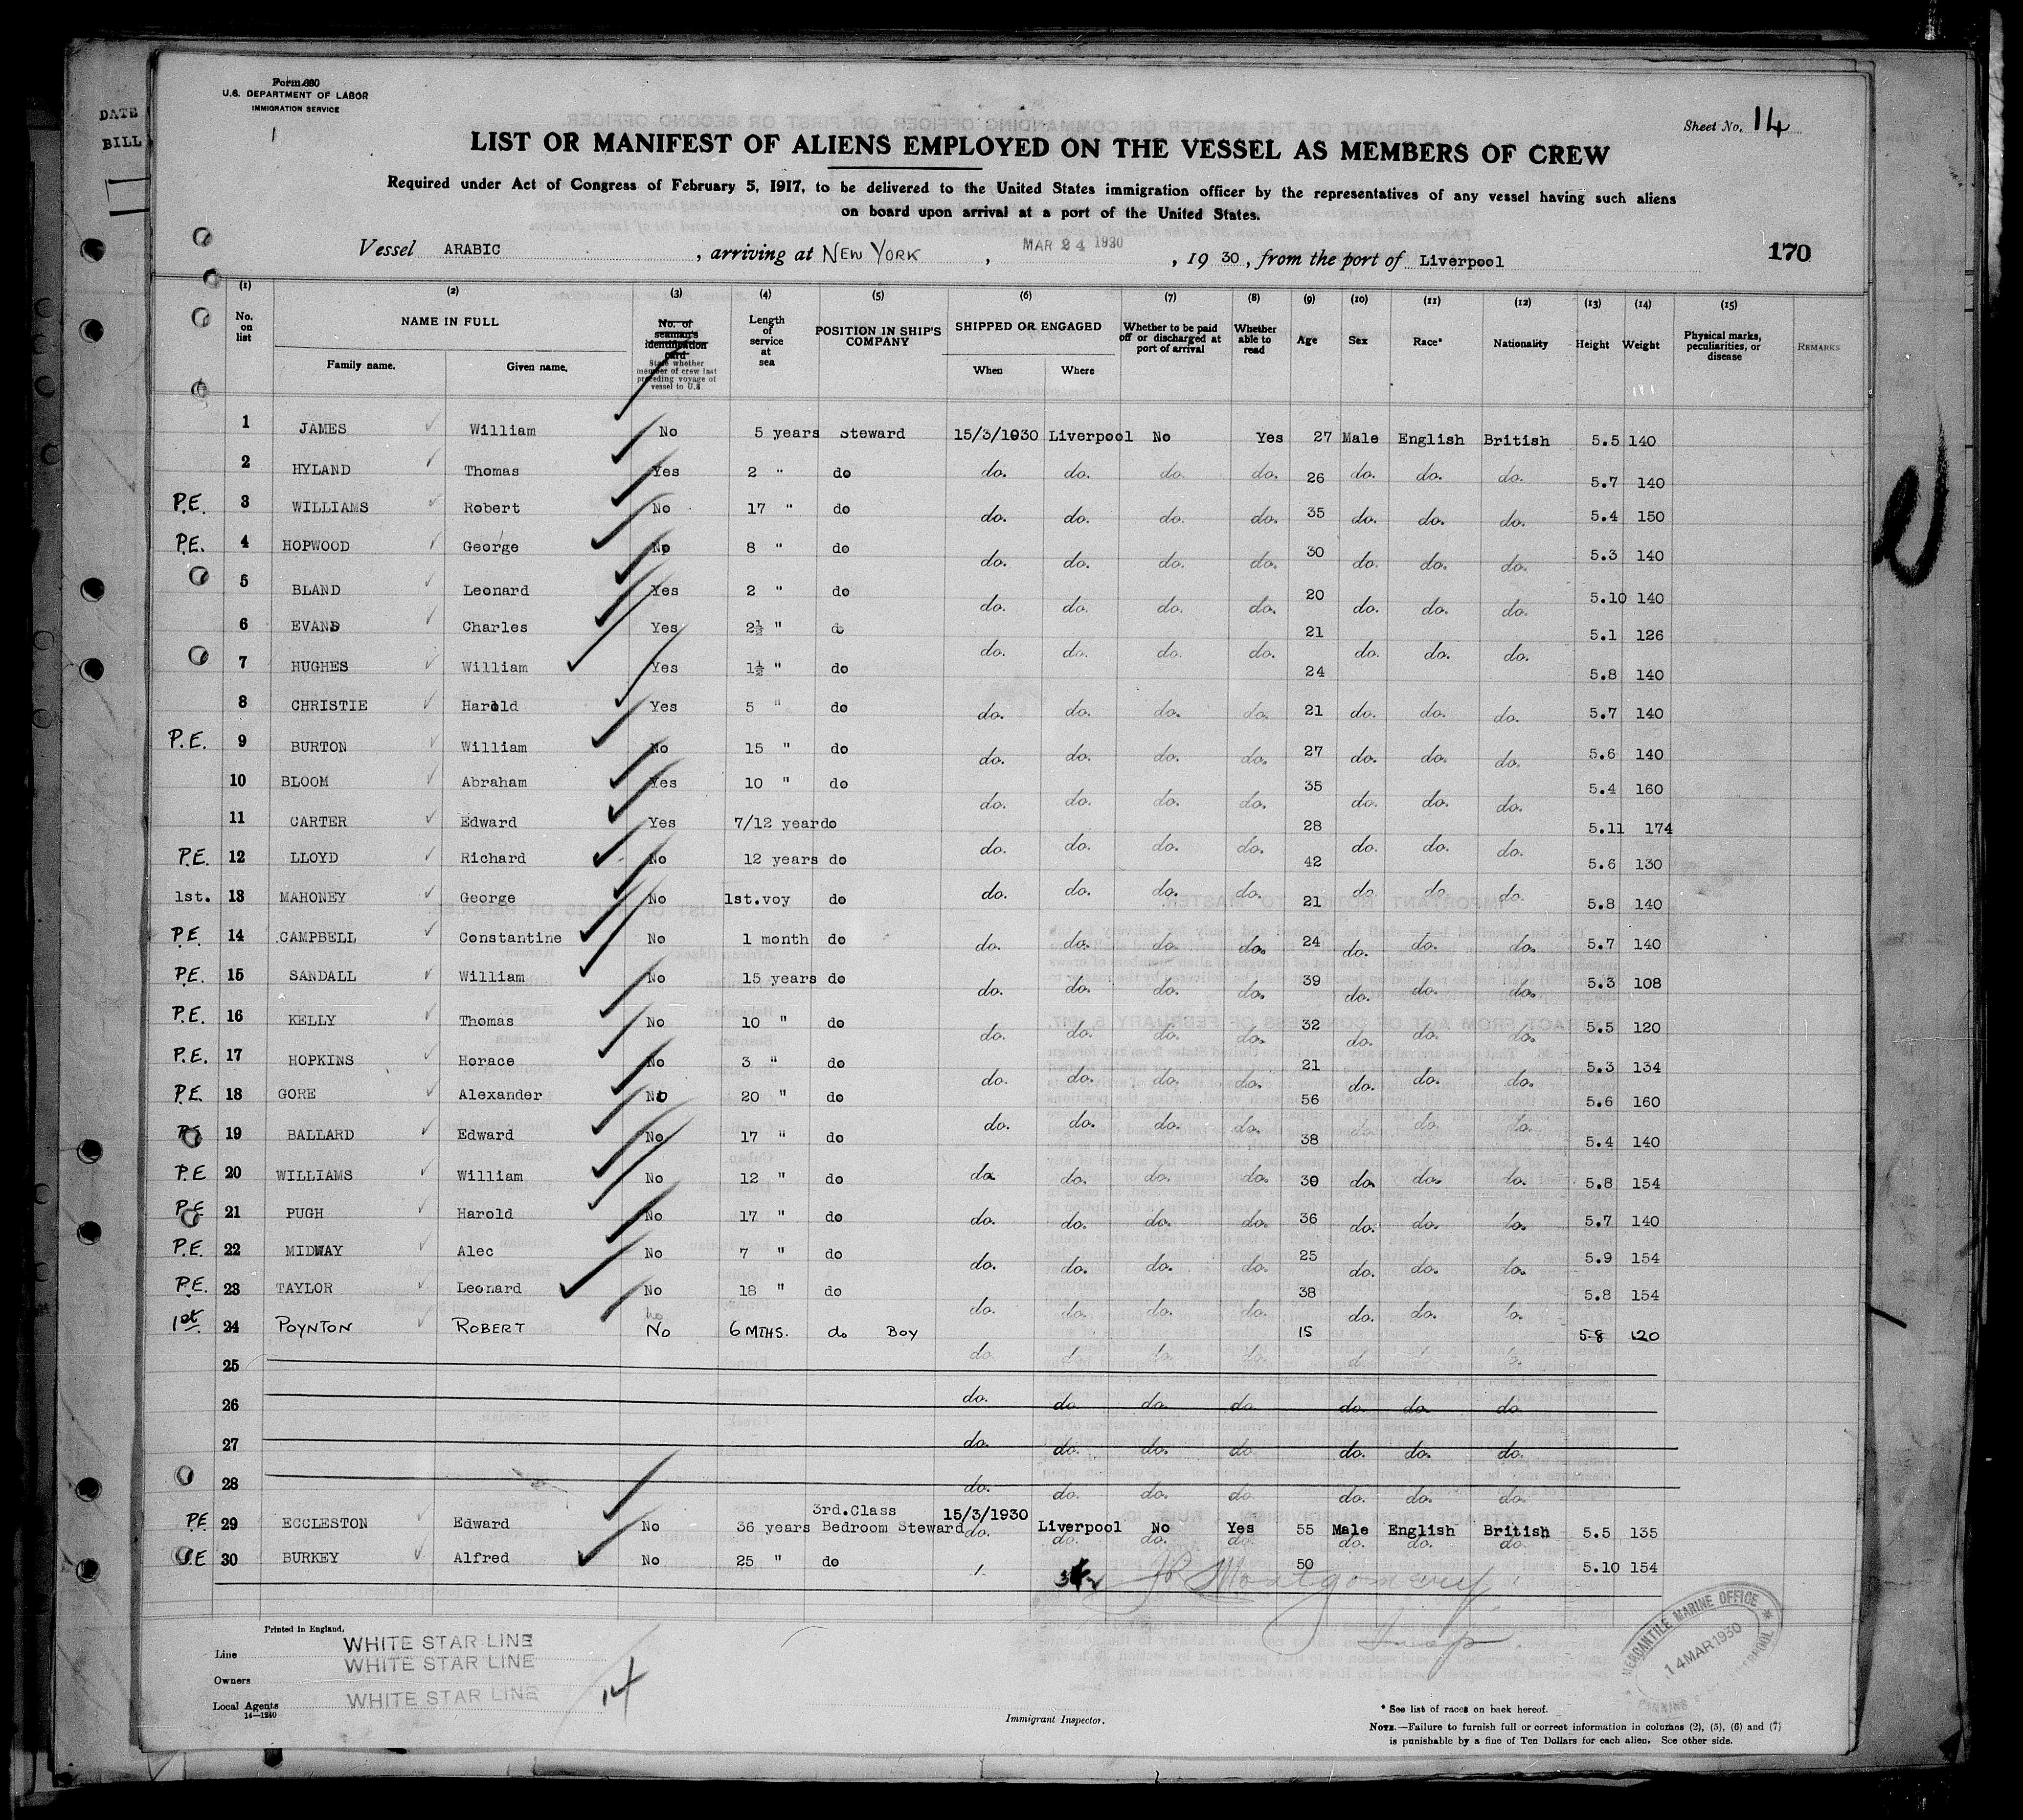 DATE
BILL
Form 680
U.S. DEPARTMENT OF LABOR
IMMIGRATION SERVICE
1
Sheet No. 14
LIST OR MANIFEST OF ALIENS EMPLOYED ON THE VESSEL AS MEMBERS OF CREW
Required under Act of Congress of February 5, 1917, to be delivered to the United States immigration officer by the representatives of any vessel having such aliens
on board upon arrival at a port of the United States.
Vessel ARABIC, arriving at NEW YORK, MAR 24 1930, 1930, from the port of Liverpool 170
(1) (2) (3) (4) (5) (6) (7) (8) (9) (10) (11) (12) (13) (14) (15)
No. on list NAME IN FULL Family name. Given name. No. of seaman's identification card State whether member of crew last preceding voyage of vessel to U.S. Length of service at sea POSITION IN SHIP'S COMPANY SHIPPED OR ENGAGED When Where Whether to be paid off or discharged at port of arrival Whether able to read Age Sex Race* Nationality Height Weight Physical marks, peculiarities, or disease REMARKS
1 JAMES William No 5 years Steward 15/3/1930 Liverpool No Yes 27 Male English British 5.5 140
2 HYLAND Thomas Yes 2 " do do. do. do. do. 26 do. do. do. 5.7 140
P.E. 3 WILLIAMS Robert No 17 " do do. do. do. do. 35 do. do. do. 5.4 150
P.E. 4 HOPWOOD George No 8 " do do. do. do. do. 30 do. do. do. 5.3 140
5 BLAND Leonard Yes 2 " do do. do. do. do. 20 do. do. do. 5.10 140
6 EVANS Charles Yes 2½ " do do. do. do. do. 21 do. do. do. 5.1 126
7 HUGHES William Yes 1½ " do 24 5.8 140
8 CHRISTIE Harold Yes 5 " do do. do. do. do. 21 do. do. do. 5.7 140
P.E. 9 BURTON William No 15 " do do. do. do. do. 27 do. do. do. 5.6 140
10 BLOOM Abraham Yes 10 " do do. do. do. do. 35 do. do. do. 5.4 160
11 CARTER Edward Yes 7/12 year do do. do. do. do. 28 do. do. do. 5.11 174
P.E. 12 LLOYD Richard No 12 years do do. do. do. do. 42 do. do. do. 5.6 130
1st. 13 MAHONEY George No 1st.voy do 21 5.8 140
P.E. 14 CAMPBELL Constantine No 1 month do do. do. do. do. 24 do. do. do. 5.7 140
P.E. 15 SANDALL William No 15 years do do. do. do. do. 39 do. do. do. 5.3 108
P.E. 16 KELLY Thomas No 10 " do do. do. do. do. 32 do. do. do. 5.5 120
P.E. 17 HOPKINS Horace No 3 " do do. do. do. do. 21 do. do. do. 5.3 134
P.E. 18 GORE Alexander No 20 " do do. do. do. do. 56 do. do. do. 5.6 160
P.E. 19 BALLARD Edward No 17 " do 38 5.4 140
P.E 20 WILLIAMS William No 12 " do do. do. do. do. 30 do. do. do. 5.8 154
P.E 21 PUGH Harold No 17 " do do. do. do. do. 36 do. do. do. 5.7 140
P.E. 22 MIDWAY Alec No 7 " do do. do. do. do. 25 do. do. do. 5.9 154
P.E. 23 TAYLOR Leonard No 18 " do do. do. do. do. 38 do. do. do. 5.8 154
1st. 24 POYNTON ROBERT No 6 MTHS. do BOY 15 5-8 120
25 do do do do do do do
26 do. do do. do do. do. do.
27 do. do. do. do do. do. do.
28 do. do. do. do do. do. do.
P.E. 29 ECCLESTON Edward No 36 years 3rd.Class Bedroom Steward 15/3/1930 Liverpool No Yes 55 Male English British 5.5 135
P.E 30 BURKEY Alfred No 25 " do do. do. do. do. 50 do. do. do. 5.10 154
JR Montgomery
Insp
Printed in England.
Line WHITE STAR LINE
Owners WHITE STAR LINE
Local Agents WHITE STAR LINE
14—1240
14
Immigrant Inspector.
MERCANTILE MARINE OFFICE
14 MAR 1930
* See list of races on back hereof.
NOTE.—Failure to furnish full or correct information in columns (2), (5), (6) and (7)
is punishable by a fine of Ten Dollars for each alien. See other side.